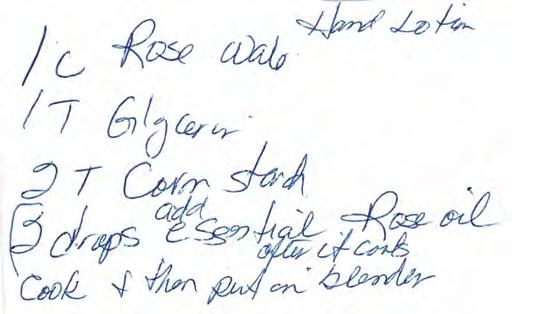 Hand Lotin
1 C Rose Wate
1 T Gilgcerin
2 T Corn starch
add
3 drops essential Rose oil
after it cools
Cook & then put in blender